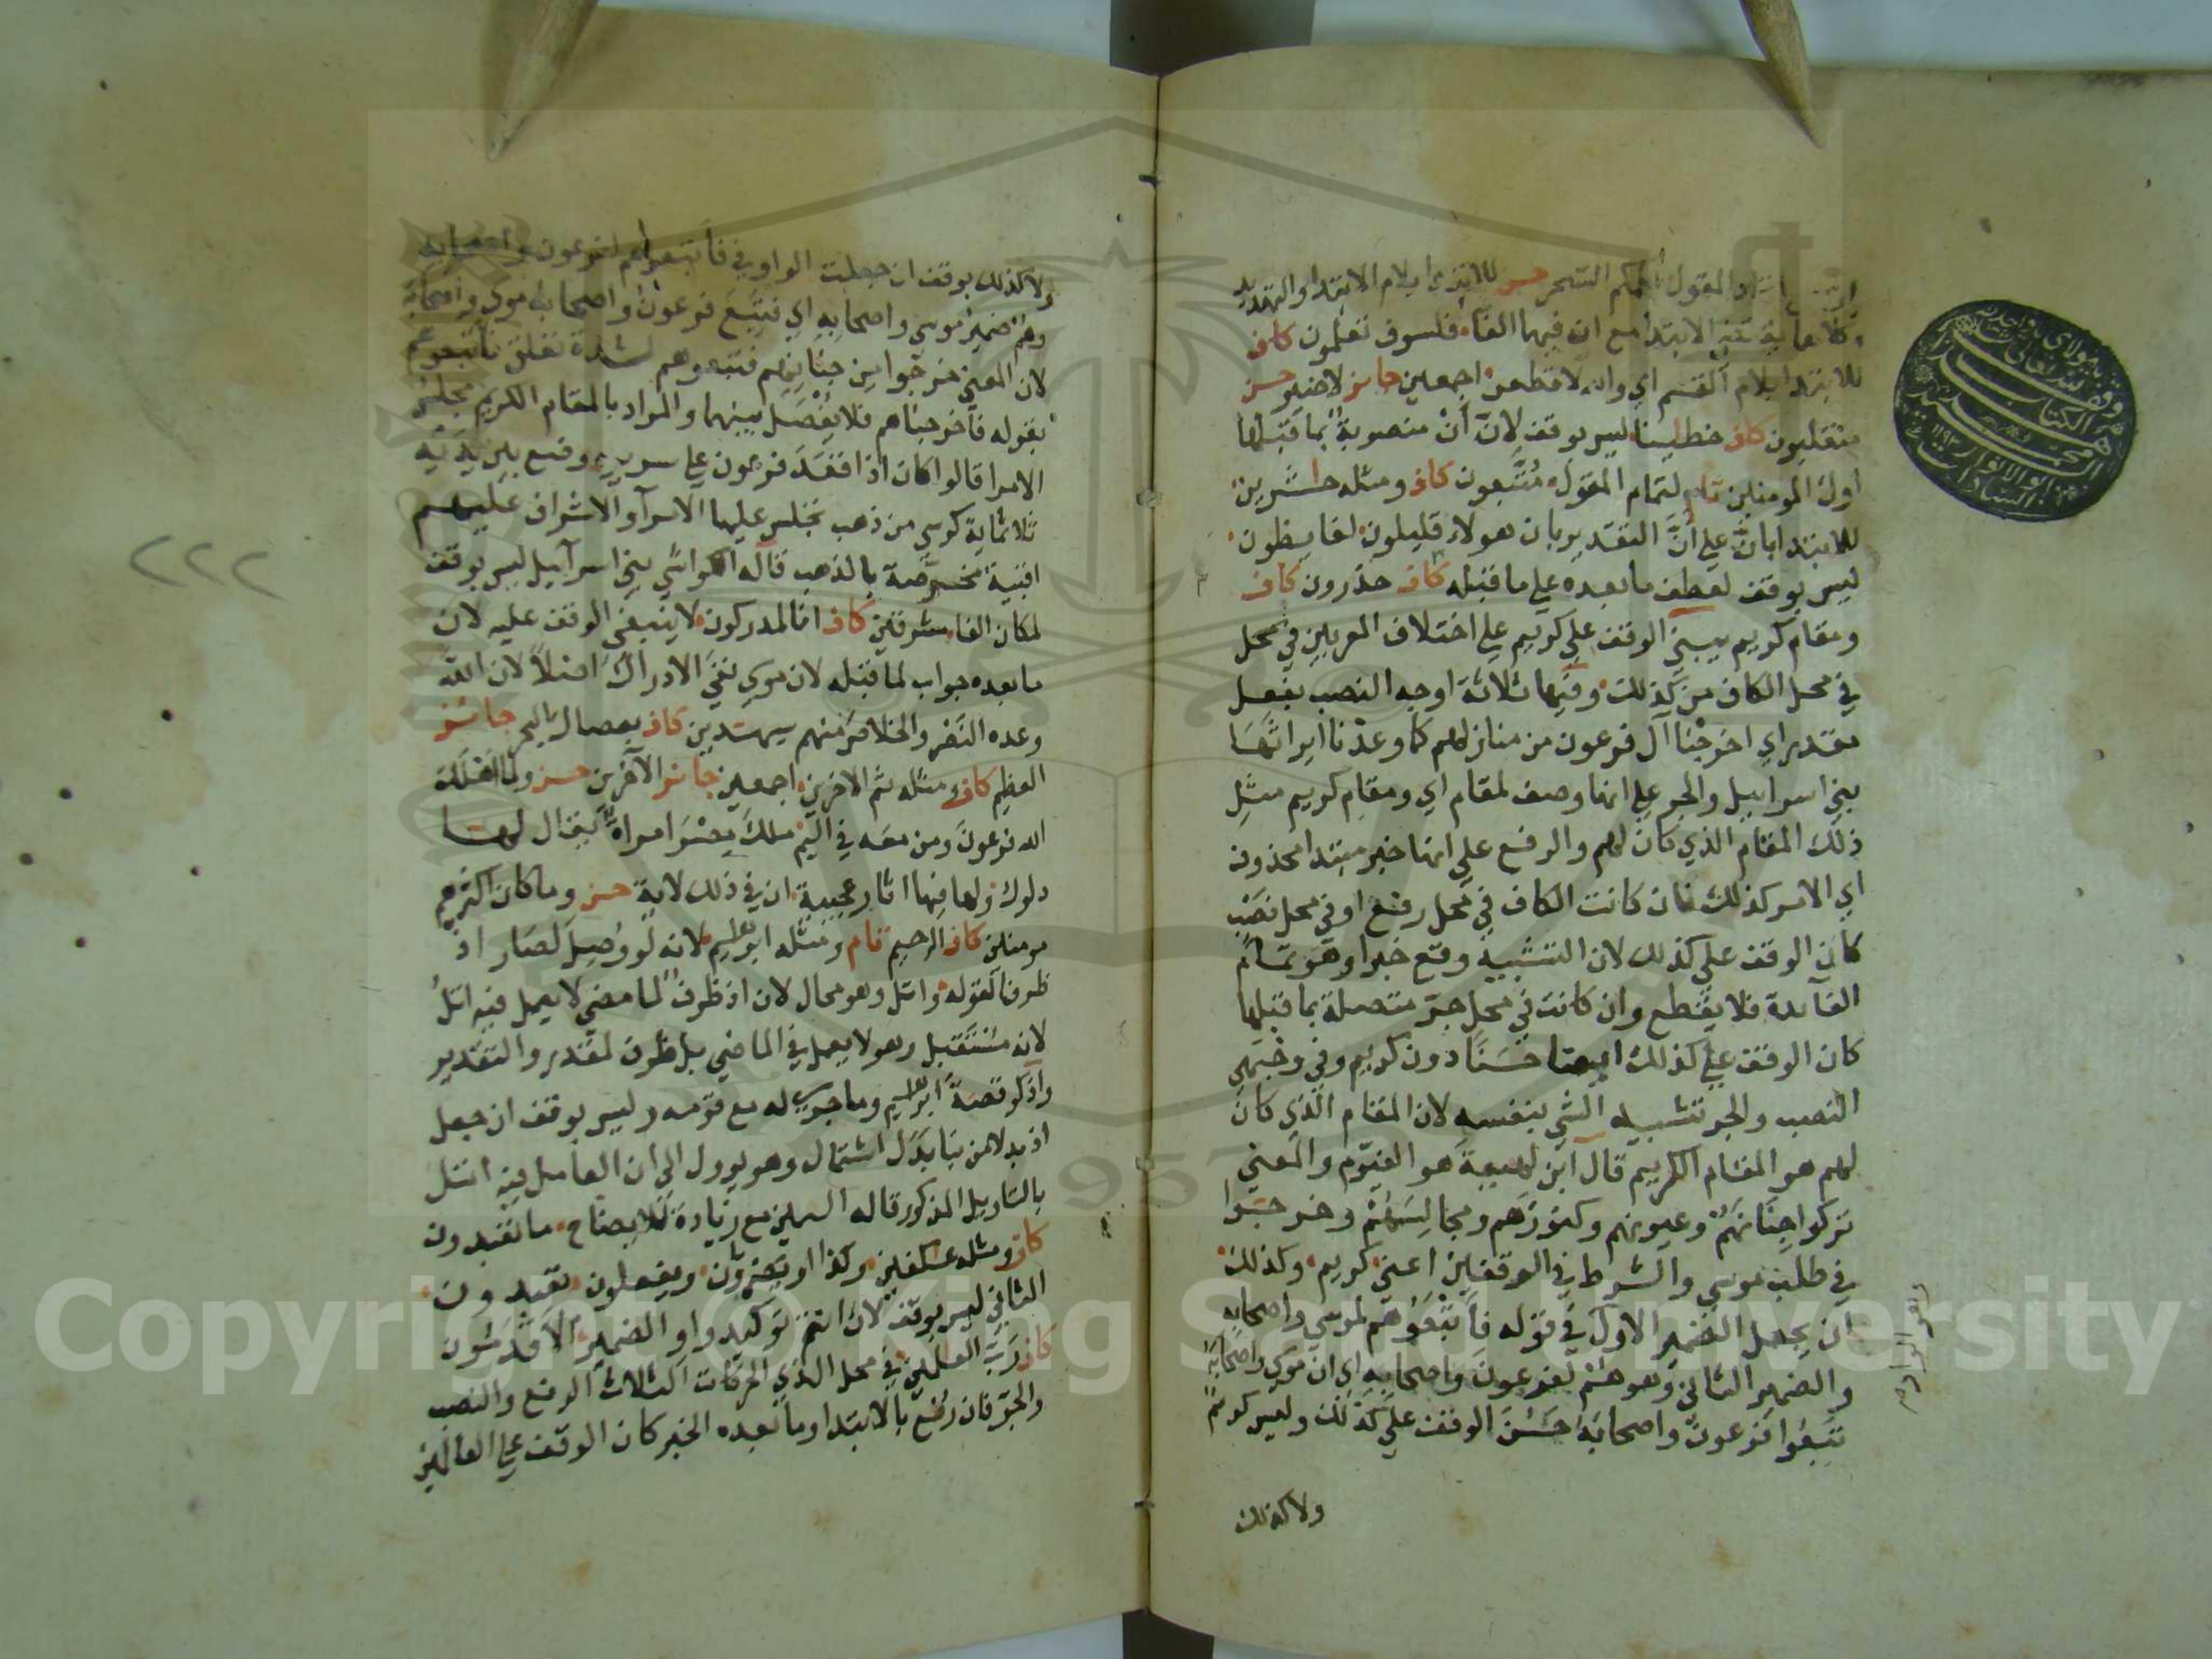 المقول علمكم السحر حسن للابتداء بلام الابتداء والتهديد
الابتدا مع ان فيها الفاء فلسوف تعلمون كاف
للابتدا بلام القسم اي والله لاقطعن اجمعين جائز لاضير حسن
منقلبون كاف خطايانا ليس بوقف لان أنْ منصوبة بما قبلها
اول المومنين تام لتمام المقول مُتَّبعون كاف ومثله حاشرين
للابتدا بان على أنَّ التقدير بان هولاء قليلون لغايظون
ليس بوقف لعطف ما بعده على ما قبله كاف حذرون كاف
ومقام كريم يبني الوقف على كريم على اختلاف المعربين في محل
في محل الكاف من كذلك وفيها ثلاثة اوجه النصب بفعل
مقدر اي اخرجنا آل فرعون من منازلهم كما وعدنا ايراثها
بني اسراييل والجر على انها وصف لمقام اي ومقام كريم مثلِ
ذلك المقام الذي كان لهم والرفع على انها خبر مبتدا محذوف
اي الامر كذلك فان كانت الكاف في محل رفع او في محل نصب
كان الوقف على كذلك لان التشبيه وقع خبرا وهو تمام
الفائدة فلا يقطع وان كانت في محل جر متصلة بما قبلها
كان الوقف على كذلك ايضا حسنًا دون كريم وفي وجهي
النصب والجر تشبيه الشي بنفسه لان المقام الذي كان
لهم هو المقام الكريم قال ابن لهيعة هو الفيّوم والمعني
تركوا جناتهم وعيونهم وكنوزهم ومجالسهم وخرجوا
في طلب موسي والشرط في الوقفين اعني كريم وكذلك
ان يجعل الضمير الاول في قوله فأتبعوهم لموسي واصحابه
والضمير الثاني وهو هم لفرعون واصحابه اي ان موسي واصحابه
تبعوا فرعون واصحابه حسن الوقف على كذلك وليس كريم
ولا كذلك
ولا كذلك بوقف ان جعلت الواو في فأتبعوهم لفرعون واصحابه
وهم ضمير موسي واصحابه اي تبع فرعون واصحابه موسي واصحابه
لان المعني خرجوا من جناتهم فتبعوهم لشدة تعلق فأتبعوهم
بقوله فأخرجناهم فلا يفصل بينهما والمراد بالمقام الكريم مجلس
الامرا قالوا كان اذا اقعد فرعون على سريره وضع بين يديه
ثلاثماية كرسي من ذهب يجلس عليها الامرآ والاشراف عليهم
اقبية مخوصة بالذهب قاله الكواشي بني اسرآييل ليس بوقف
لمكان الفا مشرقين كاف انا لمدركون لا ينبغي الوقف عليه لان
ما بعده جواب لما قبله لان موسي نفي الادراك اصلاً لان الله
وعده النصر والخلاص منهم سيهدين كاف بعصاك البحر جائز
العظيم كاف ومثله ثم الاخرين اجمعين جائز الآخرين حسن ولما اهلك
الله فرعون ومن معه في اليم ملك مصر امراة يقال لها
دلوك ولها فيها اثار عجيبة ان في ذلك لاية حسن وما كان اكثرهم
مومنين كاف الرحيم تام ومثله ابرهيم لانه لو وُصِل لصار اذ
ظرفا لقوله واتل وهو محال لان اذ ظرف لما مضي لا يعمل فيه اتلُ
لانه مستقبل وهو لا يعمل في الماضي بل ظرف لمقدر والتقدير
واذكر قصة ابرهيم وما جري له مع قومه وليس بوقف ان جعل
اذ بدلا من نبا بدل اشتمال وهو يوول الى ان العامل فيه اتل
بالتاويل المذكور قاله السمين مع زيادة للايضاح ما تعبدون
كاف ومثله عكفين وكذا او يضرون ويفعلون تعبدون
الثاني ليس بوقف لان انتم توكيد واو الضمير الاقدمون
كاف رب العلمين في محل الذي الحركات الثلاث الرفع والنصب
والجر فان رُفع بالابتدا وما بعده الخبر كان الوقف على العالمين
٢٢٢
Copyright © King Saud University